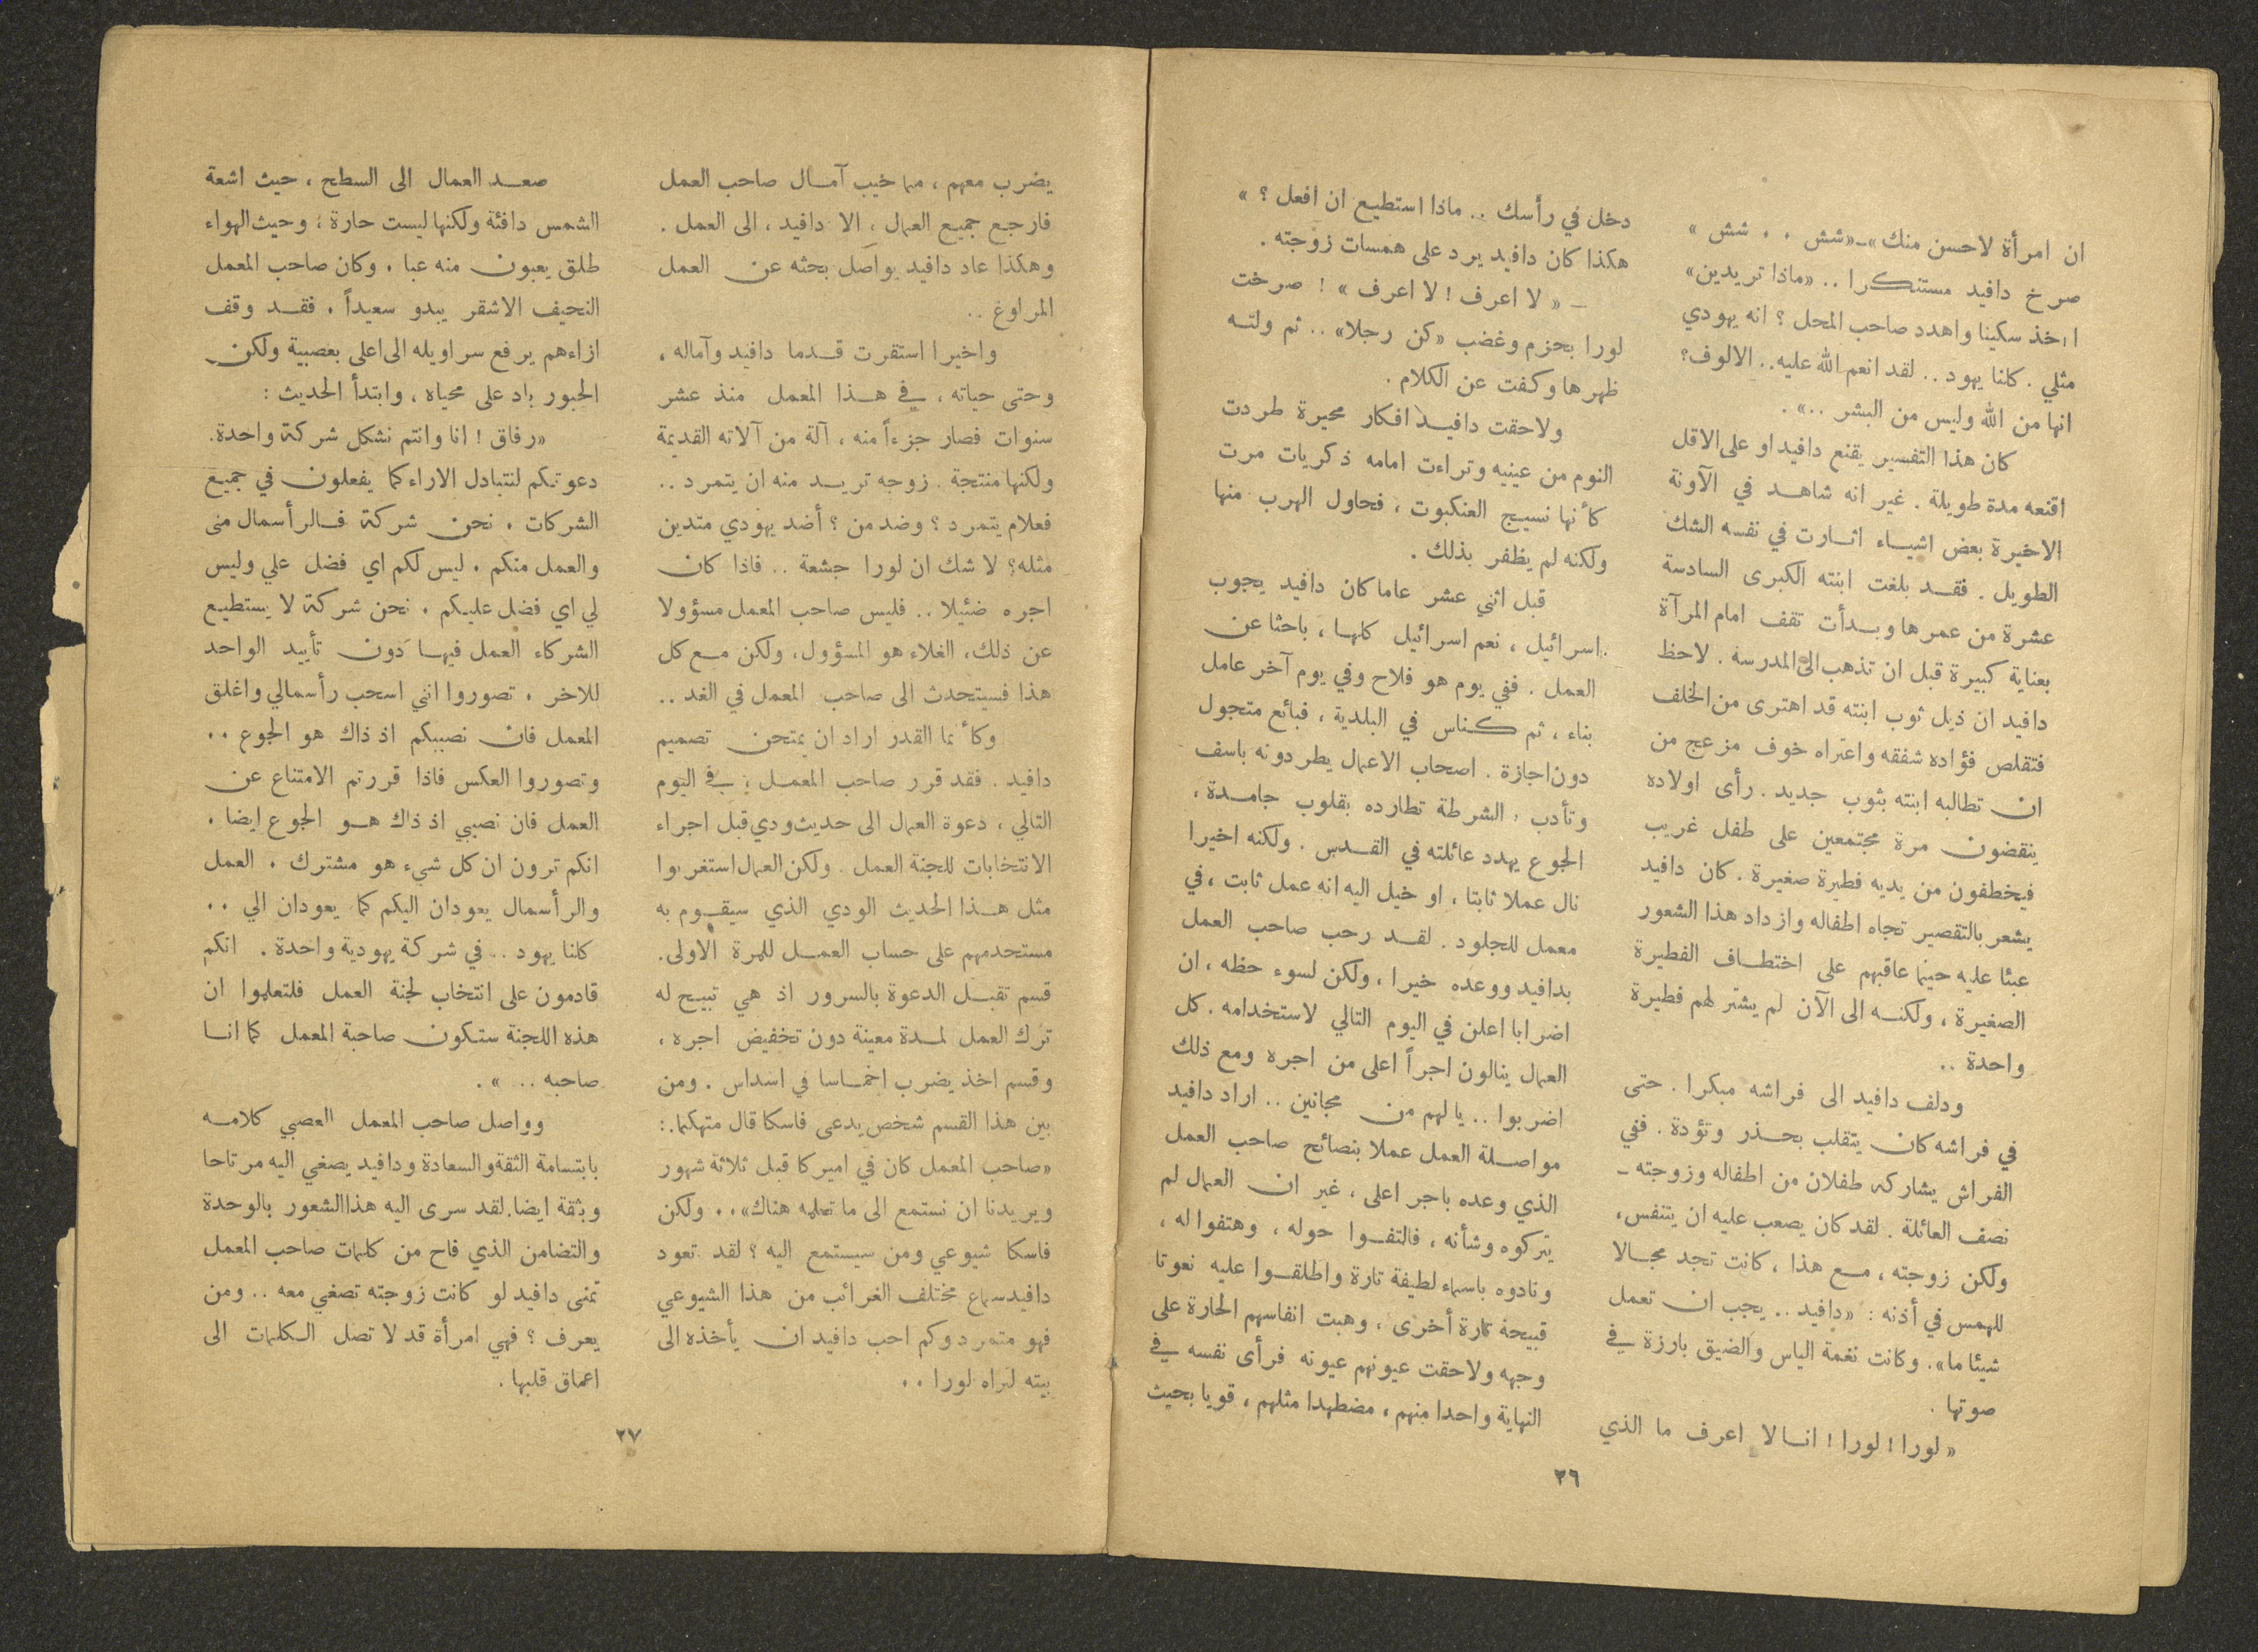 ان امرأة لاحسن منك»ـ«شش . . شش »
صرخ دافيد مستنكرا .. «ماذا تريدين»
أأخذ سكينا واهدد صاحب المحل ؟ انه يهودي
مثلي . كلنا يهود .. لقد انعم الله عليه.. الالوف؟
انها من الله وليس من البشر ..» .
كان هذا التفسير يقنع دافيد او على الاقل
اقنعه مدة طويلة . غير انه شاهد في الآونة
الاخيرة بعض اشياء اثارت في نفسه الشك
الطويل . فقد بلغت ابنته الكبرى السادسة
عشرة من عمرها وبدأت تقف امام المرآة
بعناية كبيرة قبل ان تذهب الى المدرسة . لاحظ
دافيد ان ذيل ثوب ابنته قد اهترى من الخلف
فتقلص فؤاده شفقه واعتراه خوف مزعج من
ان تطالبه ابنته بثوب جديد . رأى اولاده
ينقضون مرة مجتمعين على طفل غريب
فيخطفون من يديه فطيرة صغيرة . كان دافيد
يشعر بالتقصير تجاه اطفاله وازداد هذا الشعور
عبئا عليه حينما عاقبهم على اختطاف الفطيرة
الصغيرة ، ولكنه الى الآن لم يشتر لهم فطيرة
واحدة ..
ودلف دافيد الى فراشه مبكرا . حتى
في فراشه كان يتقلب بحذر وتؤدة . ففي
الفراش يشاركه طفلان من اطفاله وزوجته ـ
نصف العائلة . لقد كان يصعب عليه ان يتنفس،
ولكن زوجته ، مع هذا ، كانت تجد مجالا
للهمس في أذنه : «دافيد .. يجب ان تعمل
شيئا ما» . وكانت نغمة الياس والضيق بارزة في
صوتها .
« لورا ! لورا ! انا لا اعرف ما الذي
دخل في رأسك .. ماذا استطيع ان افعل ؟ »
هكذا كان دافيد يرد على همسات زوجته .
ـ « لا اعرف ! لا اعرف » ! صرخت
لورا بحزم وغضب «كن رجلا» .. ثم ولته
ظهرها وكفت عن الكلام .
ولاحقت دافيد افكار محيرة طردت
النوم من عينيه وتراءت امامه ذكريات مرت
كأنها نسيج العنكبوت ، فحاول الهرب منها
ولكنه لم يظفر بذلك .
قبل اثني عشر عاما كان دافيد يجوب
اسرائيل ، نعم اسرائيل كلها ، باحثا عن
العمل . ففي يوم هو فلاح وفي يوم آخر عامل
بناء ، ثم كناس في البلدية ، فبائع متجول
دون اجازة . اصحاب الاعمال يطردونه باسف
وتأدب ، الشرطة تطارده بقلوب جامدة ،
الجوع يهدد عائلته في القدس . ولكنه اخيرا
نال عملا ثابتا ، او خيل اليه انه عمل ثابت ، في
معمل للجلود . لقد رحب صاحب العمل
بدافيد ووعده خيرا ، ولكن لسوء حظه ، ان
اضرابا اعلن في اليوم التالي لاستخدامه . كل
العمال ينالون اجراً اعلى من اجره ومع ذلك
اضربوا .. يا لهم من مجانين .. اراد دافيد
مواصلة العمل عملا بنصائح صاحب العمل
الذي وعده باجر اعلى ، غير ان العمال لم
يتركوه وشأنه ، فالتفوا حوله ، وهتفوا له ،
ونادوه باسماء لطيفة تارة واطلقوا عليه نعوتا
قبيحة تارة أخرى ، وهبت انفاسهم الحارة على
وجهه ولاحقت عيونهم عيونه فرأى نفسه في
النهاية واحدا منهم ، مضطهدا مثلهم ، قويا بحيث
٢٦
يضرب معهم ، مما خيب آمال صاحب العمل
فارجع جميع العمال ، الا دافيد ، الى العمل .
وهكذا عاد دافيد يواصل بحثه عن العمل
المراوغ ..
واخيرا استقرت قدما دافيد وآماله ،
وحتى حياته ، في هذا المعمل منذ عشر
سنوات فصار جزءاً منه ، آلة من آلاته القديمة
ولكنها منتجة . زوجه تريد منه ان يتمرد ..
فعلام يتمرد ؟ وضد من ؟ أضد يهودي متدين
مثله؟ لا شك ان لورا جشعة .. فاذا كان
اجره ضئيلا .. فليس صاحب المعمل مسؤولا
عن ذلك، الغلاء هو المسؤول، ولكن مع كل
هذا فسيتحدث الى صاحب المعمل في الغد ..
وكأنما القدر اراد ان يمتحن تصميم
دافيد . فقد قرر صاحب المعمل ، في اليوم
التالي ، دعوة العمال الى حديث ودي قبل اجراء
الانتخابات للجنة العمل . ولكن العمال استغربوا
مثل هذا الحديث الودي الذي سيقوم به
مستخدمهم على حساب العمل للمرة الاولى.
قسم تقبل الدعوة بالسرور اذ هي تبيح له
ترك العمل لمدة معينة دون تخفيض اجره ،
وقسم اخذ يضرب اخماسا في اسداس . ومن
بين هذا القسم شخص يدعى فاسكا قال متهكما.:
«صاحب المعمل كان في اميركا قبل ثلاثة شهور
ويريدنا ان نستمع الى ما تعلمه هناك» .. ولكن
فاسكا شيوعي ومن سيستمع اليه ؟ لقد تعود
دافيد سماع مختلف الغرائب من هذا الشيوعي
فهو متمرد وكم احب دافيد ان يأخذه الى
بيته لتراه لورا ..
صعد العمال الى السطح ، حيث اشعة
الشمس دافئة ولكنها ليست حارة ؛ وحيث الهواء
طلق يعبون منه عبا . وكان صاحب المعمل
النحيف الاشقر يبدو سعيداً . فقد وقف
ازاءهم يرفع سراويله الى اعلى بعصبية ولكن
الحبور باد على محياه ، وابتدأ الحديث :
«رفاق ! انا وانتم نشكل شركة واحدة.
دعوتكم لنتبادل الاراء كما يفعلون في جميع
الشركات . نحن شركة فالرأسمال مني
والعمل منكم . ليس لكم اي فضل علي وليس
لي اي فضل عليكم . نحن شركة لا يستطيع
الشركاء العمل فيها دون تأييد الواحد
للاخر . تصوروا انني اسحب رأسمالي واغلق
المعمل فان نصيبكم اذ ذاك هو الجوع ..
وتصوروا العكس فاذا قررتم الامتناع عن
العمل فان نصيبي اذ ذاك هو الجوع ايضا .
انكم ترون ان كل شيء هو مشترك . العمل
والرأسمال يعودان اليكم كما يعودان الي ..
كلنا يهود .. في شركة يهودية واحدة . انكم
قادمون على انتخاب لجنة العمل فلتعلموا ان
هذه اللجنة ستكون صاحبة المعمل كما انا
صاحبه .. » .
وواصل صاحب المعمل العصبي كلامه
بابتسامة الثقة والسعادة ودافيد يصغي اليه مرتاحا
وبثقة ايضا. لقد سرى اليه هذا الشعور بالوحدة
والتضامن الذي فاح من كلمات صاحب المعمل
تمنى دافيد لو كانت زوجته تصغي معه .. ومن
يعرف ؟ فهي امرأة قد لا تصل الكلمات الى
اعماق قلبها .
٢٧